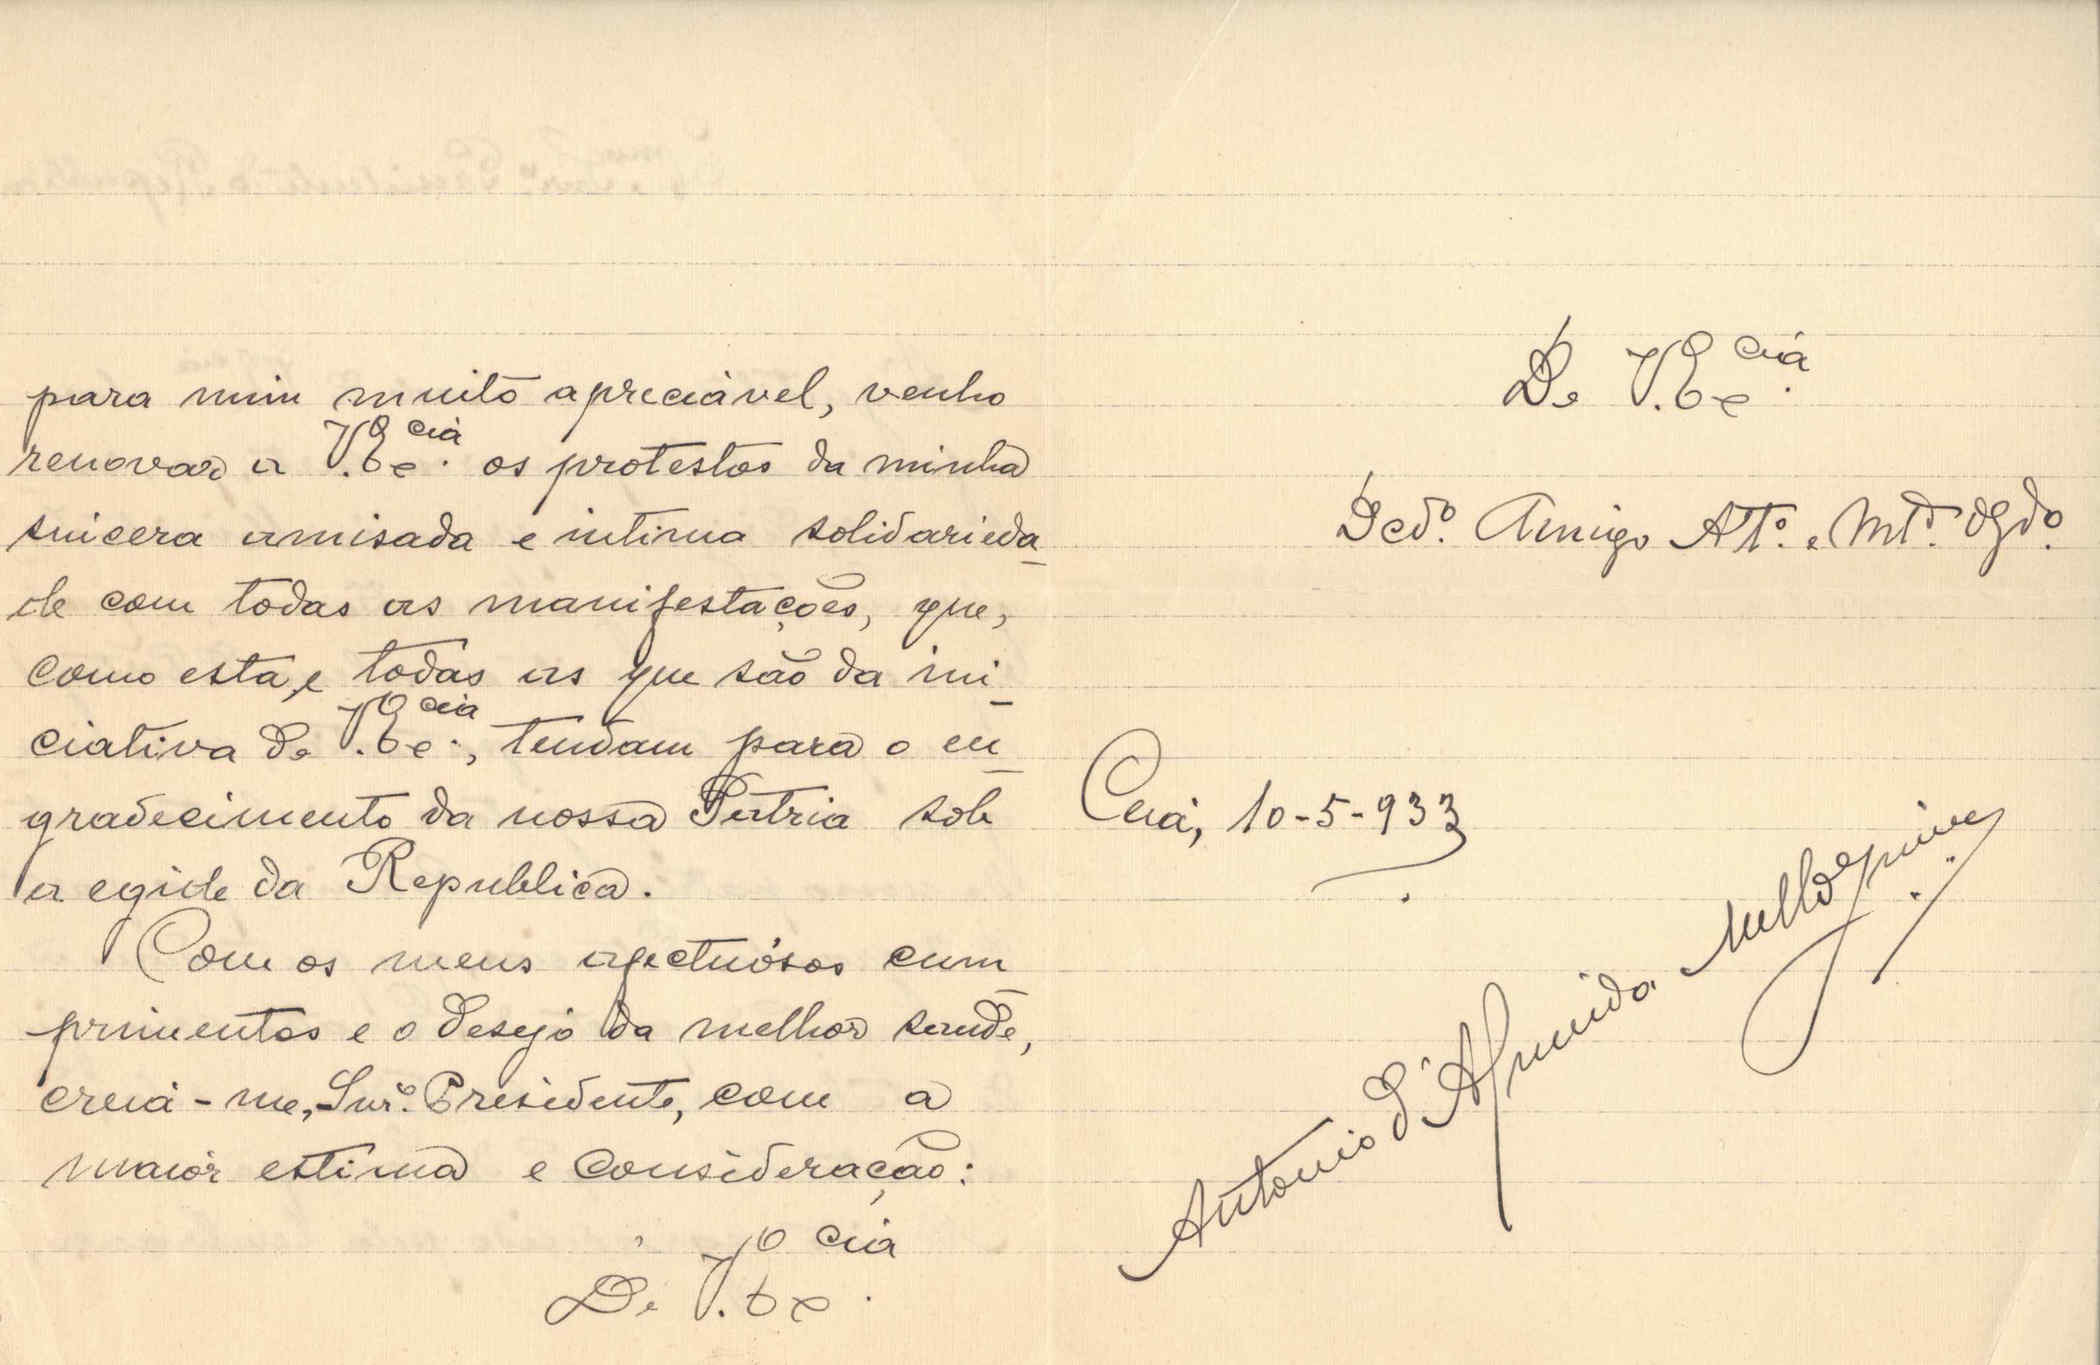 para mim muito apreciável, venho
renovar a V. Ex.cia os protestos da minha
sincera amisada e intima solidarieda_
de com todas as manifestações, que,
como esta, e todas as que são da ini_
ciativa de V. Ex.cia, tendam para o en_
gradecimento da nossa Patria sob
a egide da Republica.
Com os meus afectuósos cum_
primentos e o desejo da melhor saude,
creia-me, Snr. Presidente, com a
maiór estima e consideração:
De V. Ex.cia
De V. Ex.cia
Dedº. Amigo Attº. e Mtº. Obgdº.
Ceia, 10-5-933
Antonio d'Almeida Mello